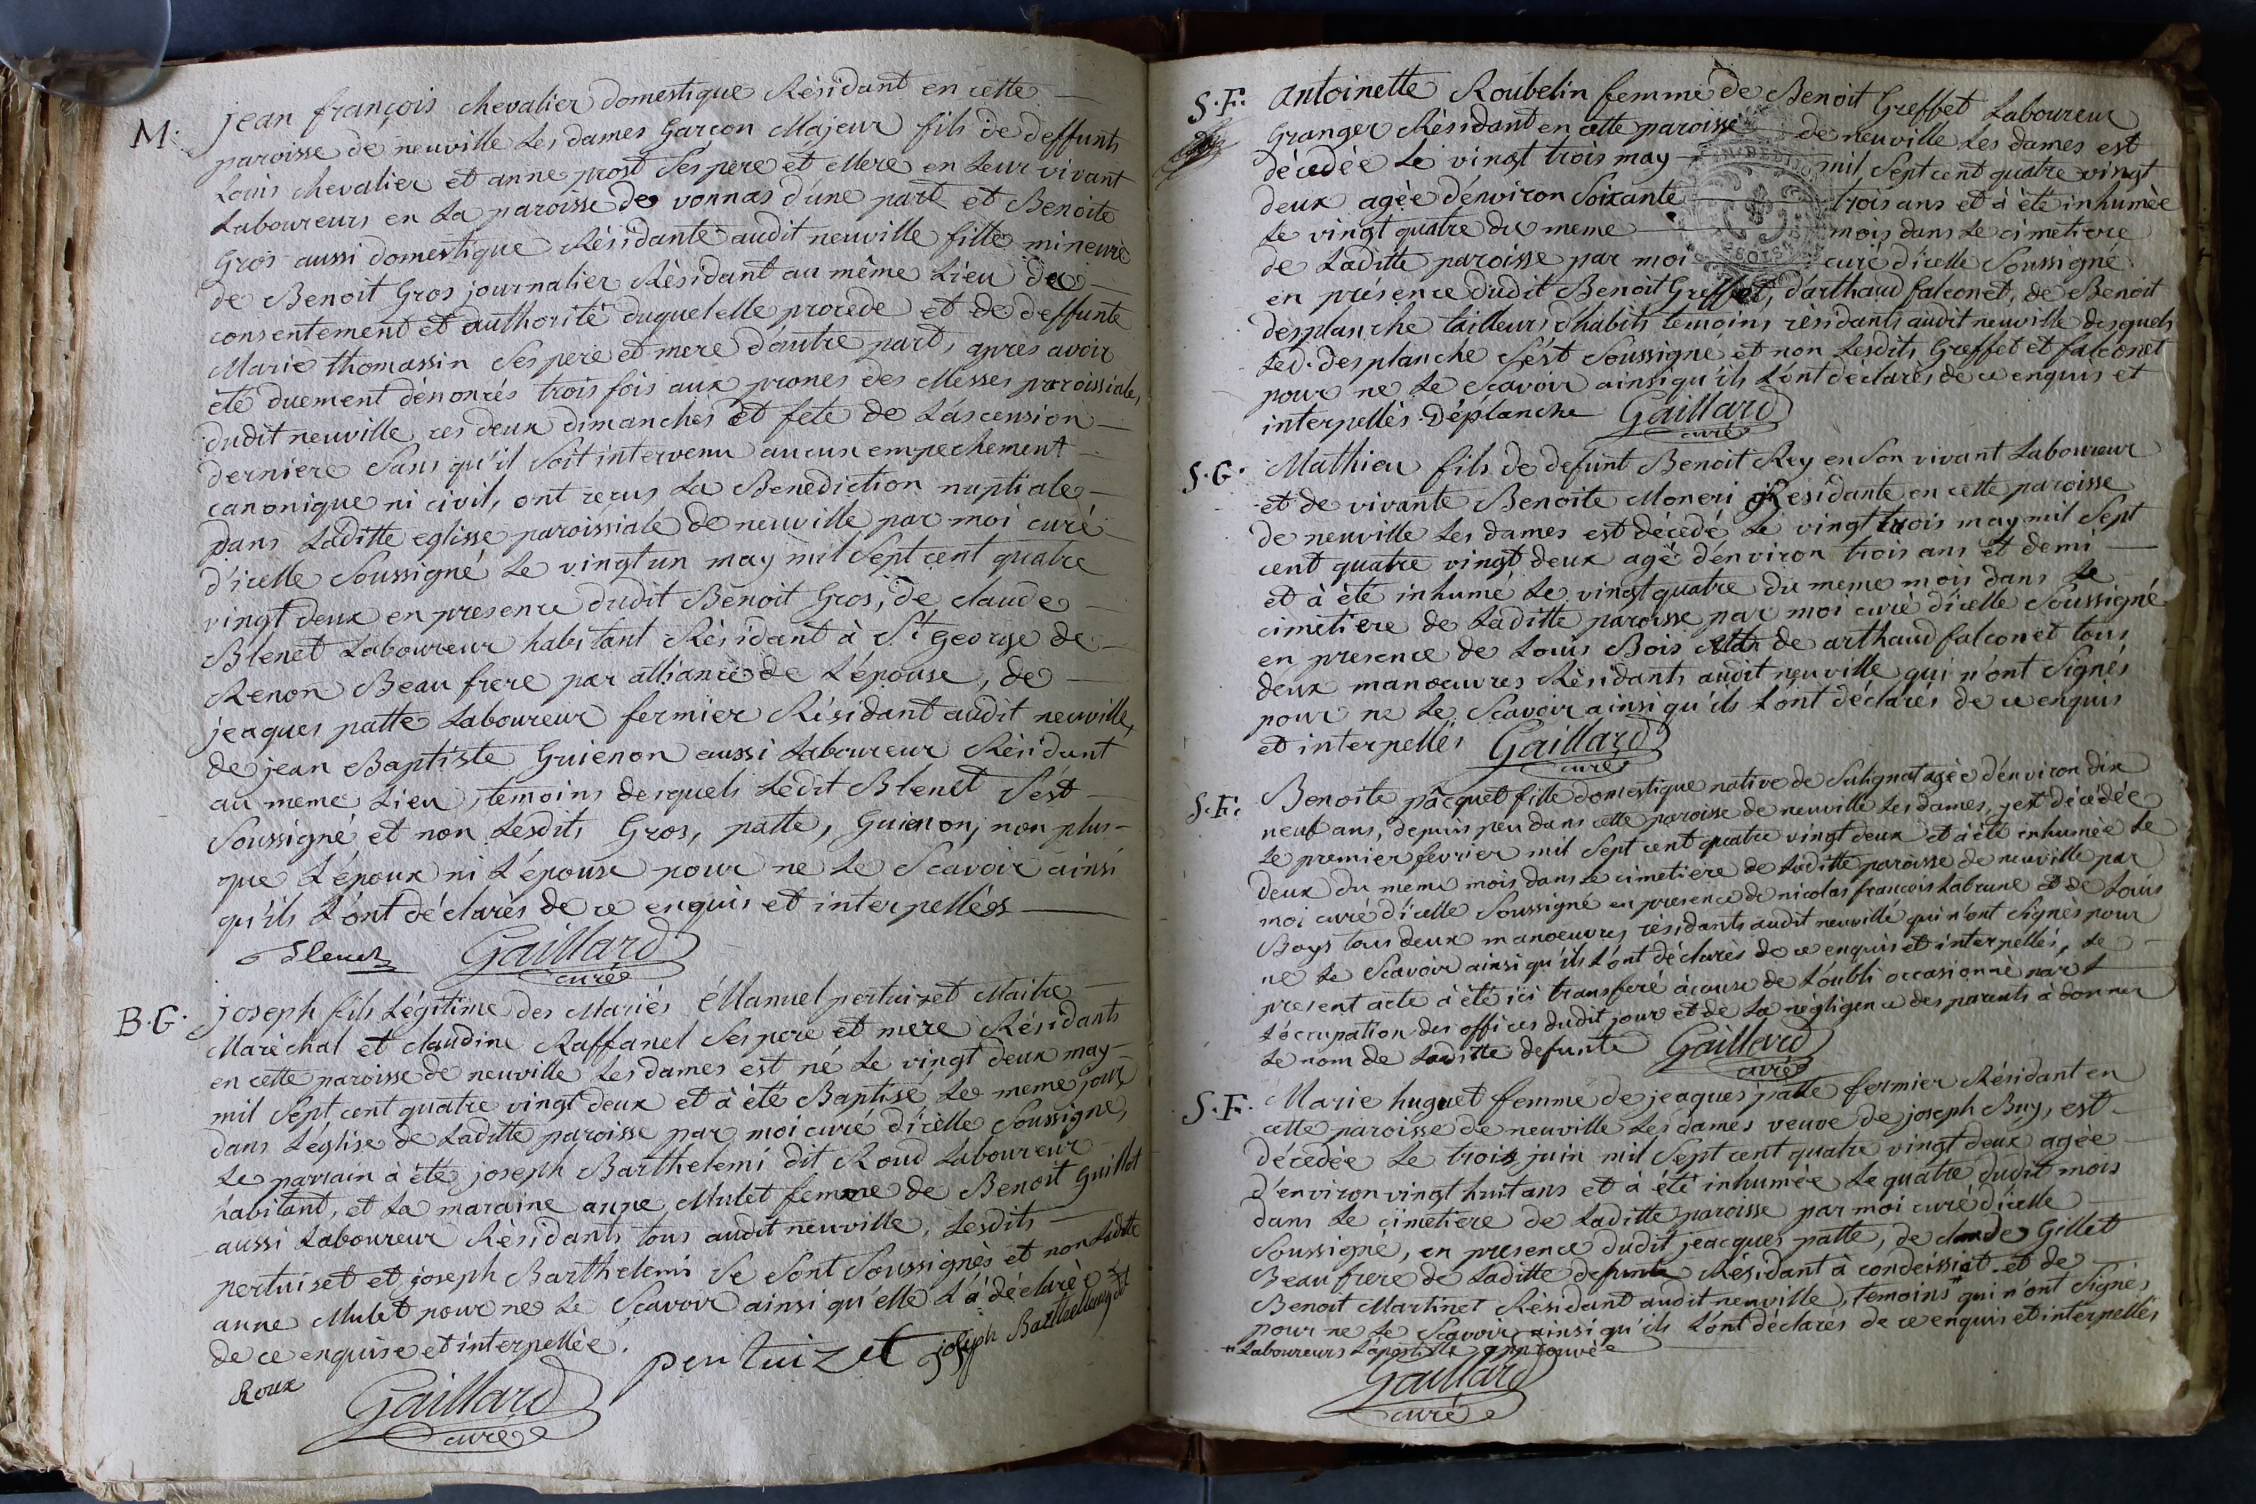 M. jean françois chevalier domestique Résidant en cette
paroisse de neuville Les dames Garçon Majeur fils de deffunts
Louis chevalier et anne prost Ses pere et Mere en Leur vivant
Laboureurs en La paroisse de vonnas d'une part et Benoite
Gros aussi domestique Résidante audit neuville fille mineure
de Benoit Gros journalier Résidant au même Lieu de
consentement et authorité duquel elle procede et de deffunte
Marie thomassin Ses pere et mere d'autre part, après avoir
été duement dénoncés trois fois aux prones des Messes paroissiales
dudit neuville ces deux dimanches et fete de L'ascension
derniere Sans qu'il Soit intervenu aucun empechement
canonique ni civil, ont reçus La Benediction nuptiale
dans Laditte eglisse paroissiale de neuville par moi curé
d'icelle Soussigné Le vingt un may mil Sept cent quatre
vingt deux en presence dudit Benoit Gros, de claude
Blenet Laboureur habitant Résidant à St George de
Renon Beau frere par alliance de L'épouse, de
jeaques patte Laboureur fermier Résidant audit neuville,
de jean Baptiste Guienon aussi Laboureur Résidant
au meme Lieu, temoins desquels Ledit Blenet S'est
Soussigné et non Lesdits Gros, patte, Guienon, non plus
que L'époux ni L'épouse pour ne Le Scavoir ainsi
qu'ils L'ont déclarés de ce enquis et interpellés
Blenet Gaillard
curé
B.G. joseph fils Légitime des Mariés éManuel pertuizet Maitre
Maréchal et claudine Raffanel Ses pere et mere Résidants
en cette paroisse de neuville Les dames est né Le vingt deux may
mil Sept cent quatre vingt deux et à été Baptisé Le meme jour
dans L'église de Laditte paroisse par moi curé d'icelle Soussigné,
Le parrain à été joseph Barthelemi dit Roud Laboureur
habitant, et La maraine anne Mulet femme de Benoit Guillot
aussi Laboureur Résidants tous audit neuville, Lesdits
pertuiset et joseph Barthelemi Se Sont Soussignés et non Laditte
anne Mulet pour ne Le Scavoir ainsi qu'elle L'à déclarè
de ce enquise et interpellée.
pertuizet joseph Barthellemy dt
Roux
Gaillard
curé
S.F. Antoinette Roubelin femme de Benoit Greffet Laboureur
Granger Résidant en cette paroisse de neuville Les dames est
décedée Le vingt trois may mil Sept cent quatre vingt
deux agèe d'environ Soixante trois ans et à été inhumèe
Le vingt quatre du meme mois dans Le cimetiere
de Laditte paroisse par moi curé d'icelle Soussigné
en présence dudit Benoit Greffet, d'arthaud falconet, de Benoit
desplanche tailleurs d'habits temoins résidants audit neuville desquels
Led. desplanche S'est Soussigné et non Lesdits Greffet et falconet
pour ne Le Scavoir ainsi qu'ils L'ont déclarés de ce enquis et
interpellés. Déplanche Gaillard
curé
S.G. Mathieu fils de defunt Benoit Rey en Son vivant Laboureur
et de vivante Benoite Moneri Résidante en cette paroisse
de neuville Les dames est décedé Le vingt trois may mil Sept
cent quatre vingt deux agé d'environ trois ans et demi
et à été inhumé Le vingt quatre du meme mois dans Le
cimetiere de Laditte paroisse par moi curé d'icelle Soussigné
en presence de Louis Bois de arthaud falconet tous
deux manoeuvres Résidants audit neuville qui n'ont Signés
pour ne Le Scavoir ainsi qu'ils L'ont déclarés de ce enquis
et interpellés Gaillard
curé
S.F. Benoite pacquet fille domestique native de Sulignat agèe d'environ dix
neuf ans, depuis peu dans cette paroisse de neuville Les dames, y est décédée
Le premier fevrier mil Sept cent quatre vingt deux et à été inhumèe Le
deux du meme mois dans Le cimetiere de Laditte paroisse de neuville par
moi curé d'icelle Soussigné en presence de nicolas françois Labrune et de Louis
Boys tous deux manoeuvres résidants audit neuville qui n'ont Signés pour
ne Le Scavoir ainsi qu'ils L'ont déclarés de ce enquis et interpellés, Le
present acte à été ici transferé à cause de L'oubli occasionné par
L'occupation des offices dudit jour et de La négligence des parents à donner
Le nom de Laditte defunte Gaillard
curé
S.F. Marie huguet femme de jeaques patte fermier Résidant en
cette paroisse de neuville Les dames veuve de joseph Buy, est
décedée Le trois juin mil Sept cent quatre vingt deux agèe
d'environ vingt huit ans et à été inhumèe Le quatre dudit mois
dans Le cimetiere de Laditte paroisse par moi curé d'icelle
Soussigné, en presence dudit jeacques patte, de claude Gillet
Beau frere de Laditte defunte Résidant à condeissiat et de
Benoit Martinet Résidant audit neuville, temoins * qui n'ont Signés
pour ne Le Scavoir ainsi qu'ils L'ont déclarés de ce enquis et interpellés
* Laboureurs L'apostille approuvèe
Gaillard
curé